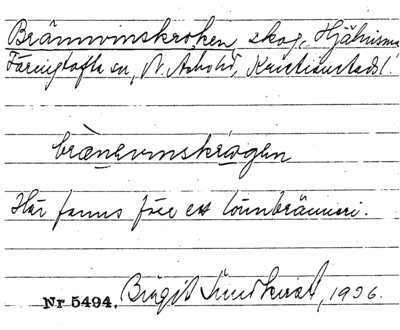 Brännvinskroken, skog, Hjälmsma
Färingtofta sn, N. Åsbohd, Kristianstads l.
brä̀nevinskrògen
Här fanns förr ett lönnbränneri.
Nr 5494. Birgit Sundkvist, 1936.